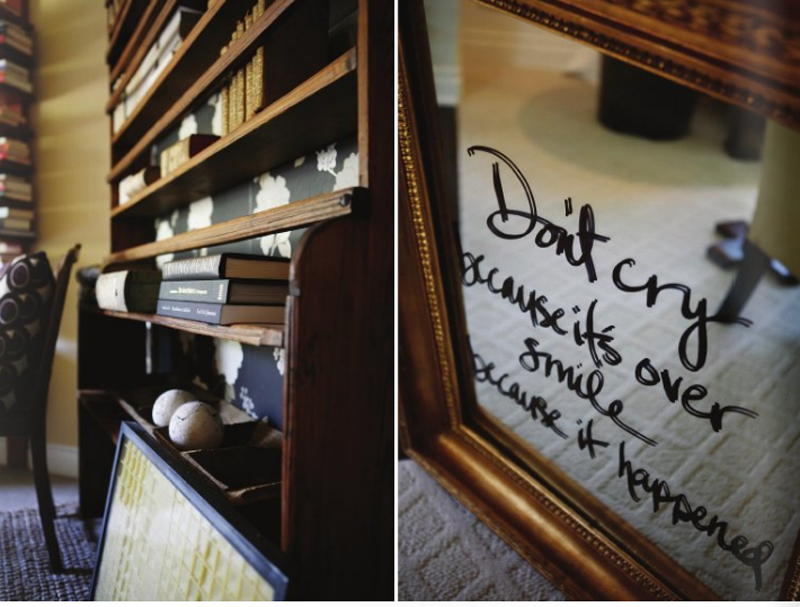 IRVING PENN
Don't cry
because it's over
smile
because it happened